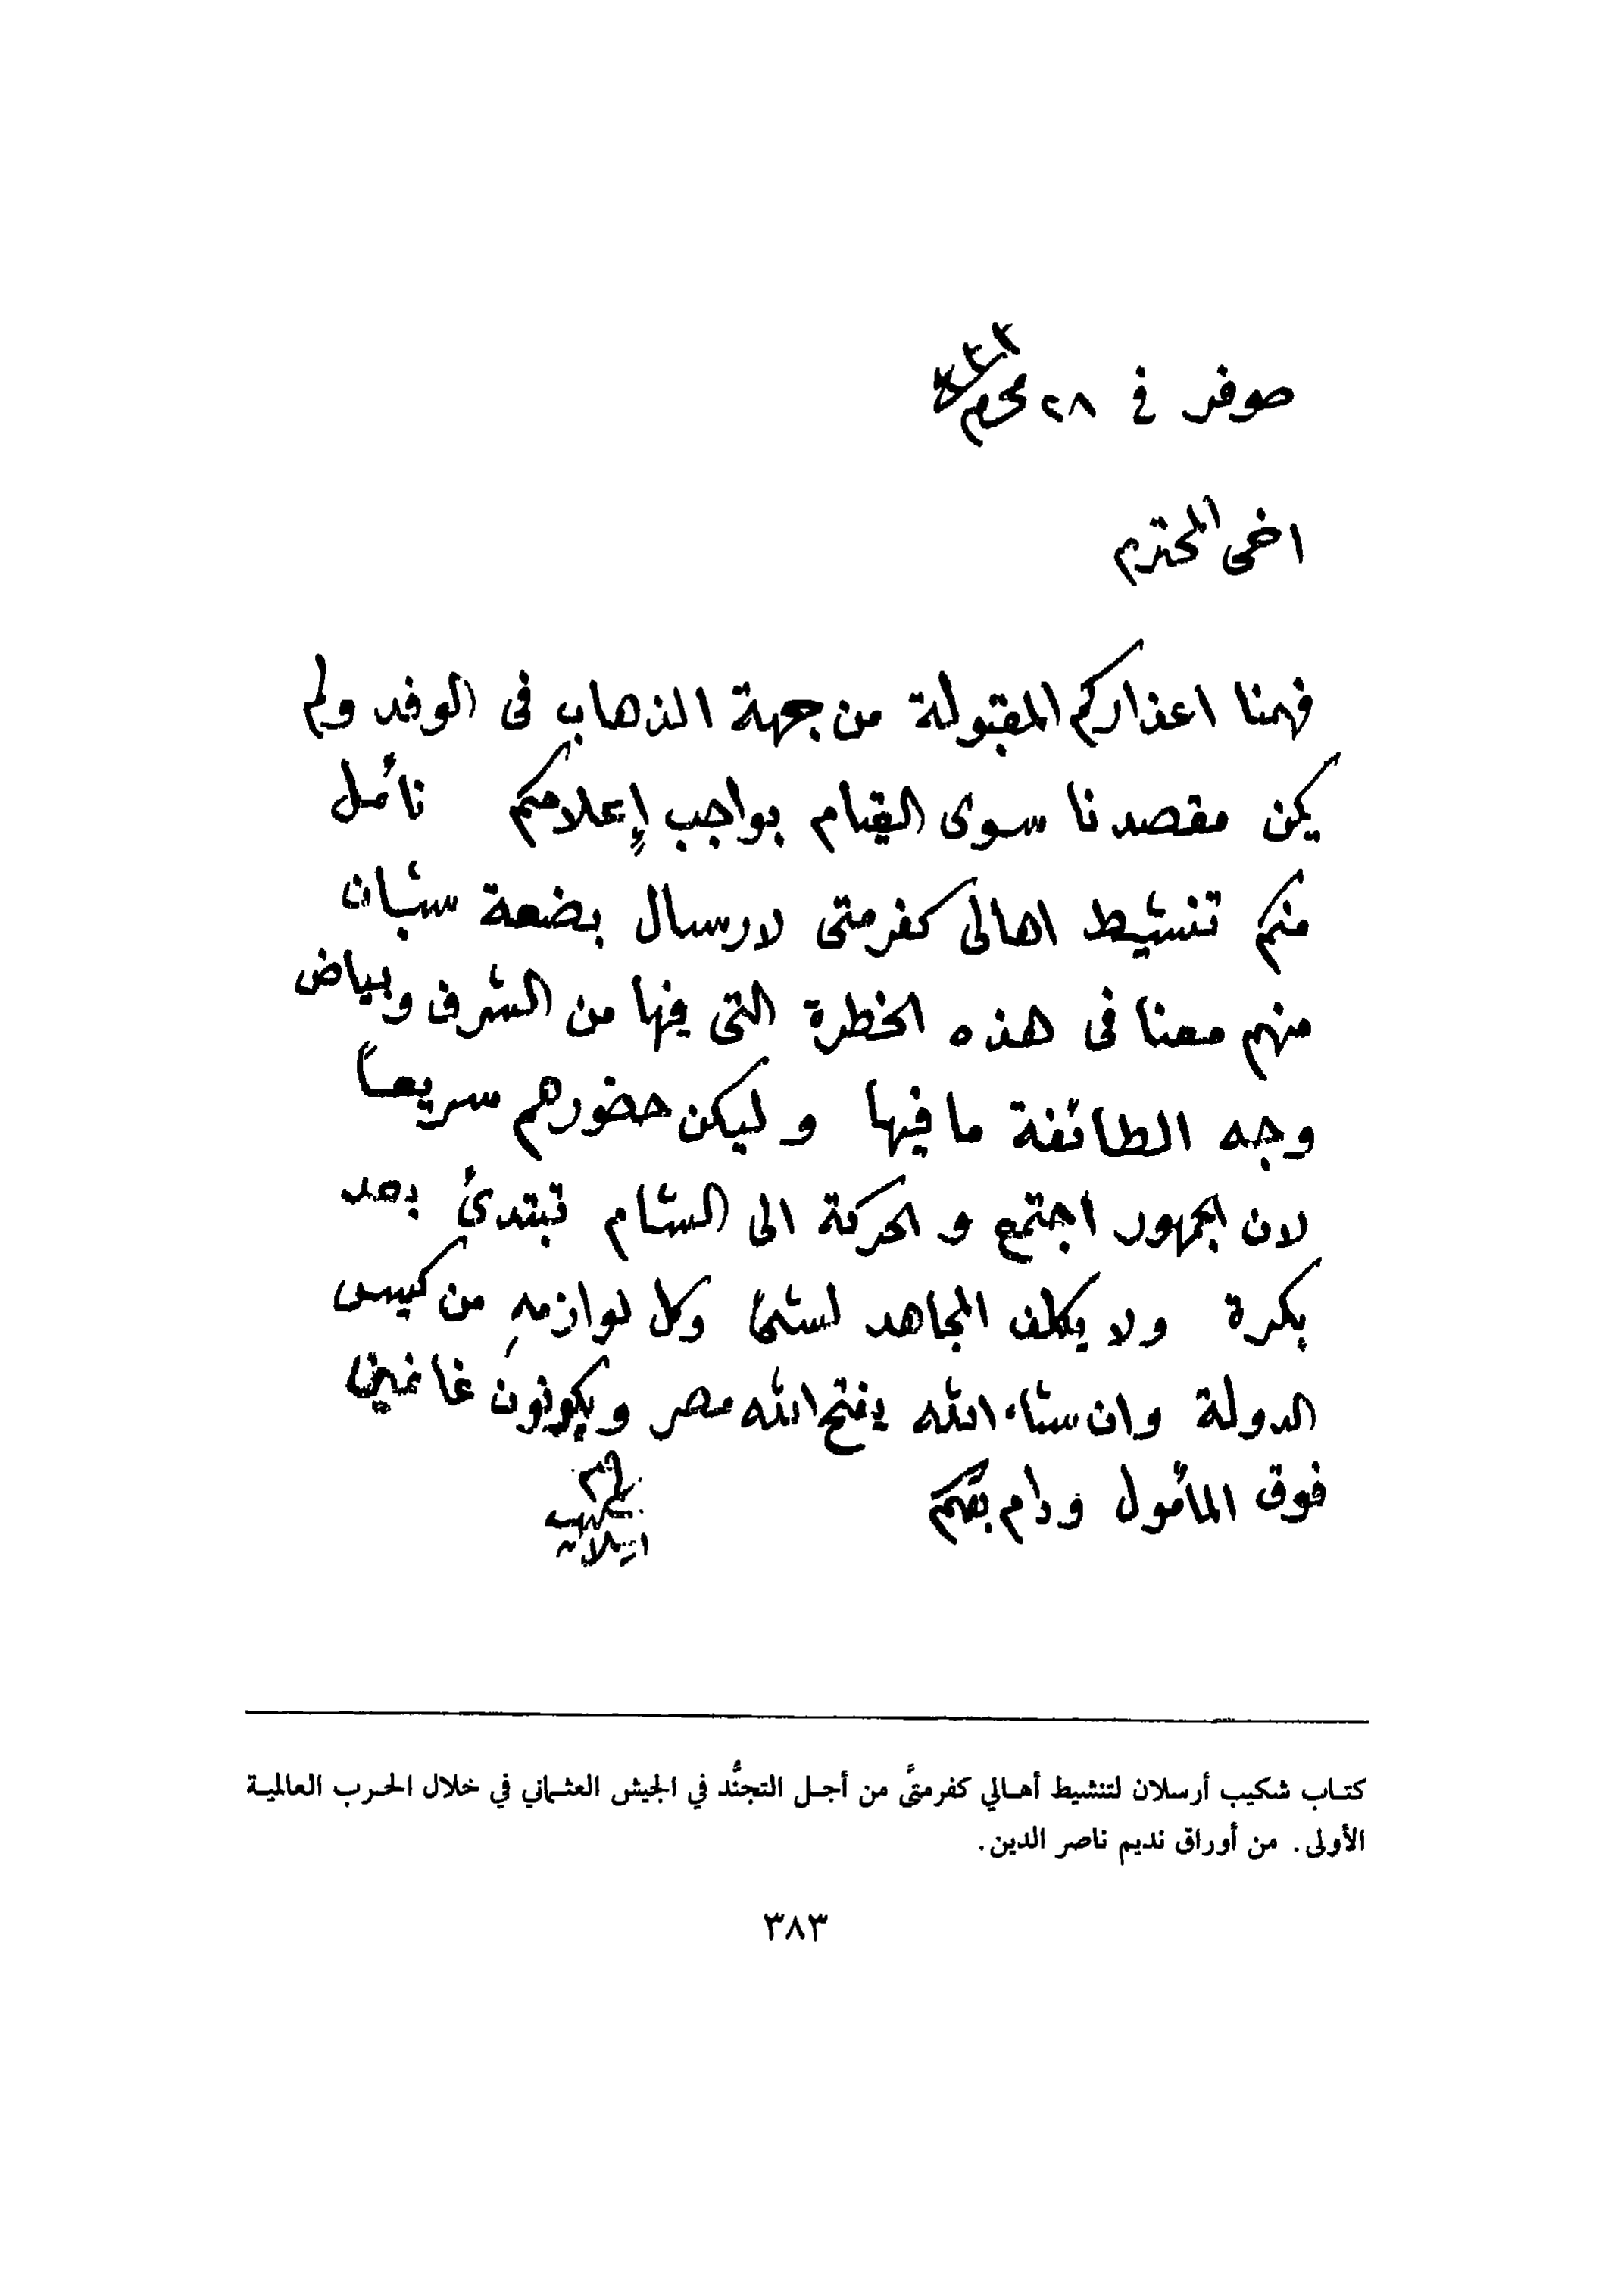 صوفر في ٢٨ محرم ٣٣٣
اخي المحترم
فهمنا اعذاركم المقبولة من جهة الذهاب في الوفد ولم
يكن مقصدنا سوى القيام بواجب إعلامكم نأمل
منكم تنشيط اهالي كفرمتى لارسال بضعة شبان
منهم معنا في هذه الخطرة التي فيها من الشرف وبياض
وجه الطائفة ما فيها وليكن حضورهم سريعاً
لان الجمهور اجتمع والحركة الى الشام تبتدئ بعد
بكرة ولا يكلف المجاهد لشئ وكل لوازمهِ من كيس
الدولة وان شاء الله يفتح الله مصر ويكونون غانمين
فوق المأمول ودام بقاكم
شكيب
ارسلان
كتاب شكيب أرسلان لتنشيط أهالي كفرمتَّى من أجل التجنُّد في الجيش العثماني في خلال الحرب العالمية
الأولى. من أوراق نديم ناصر الدين.
٣٨٣